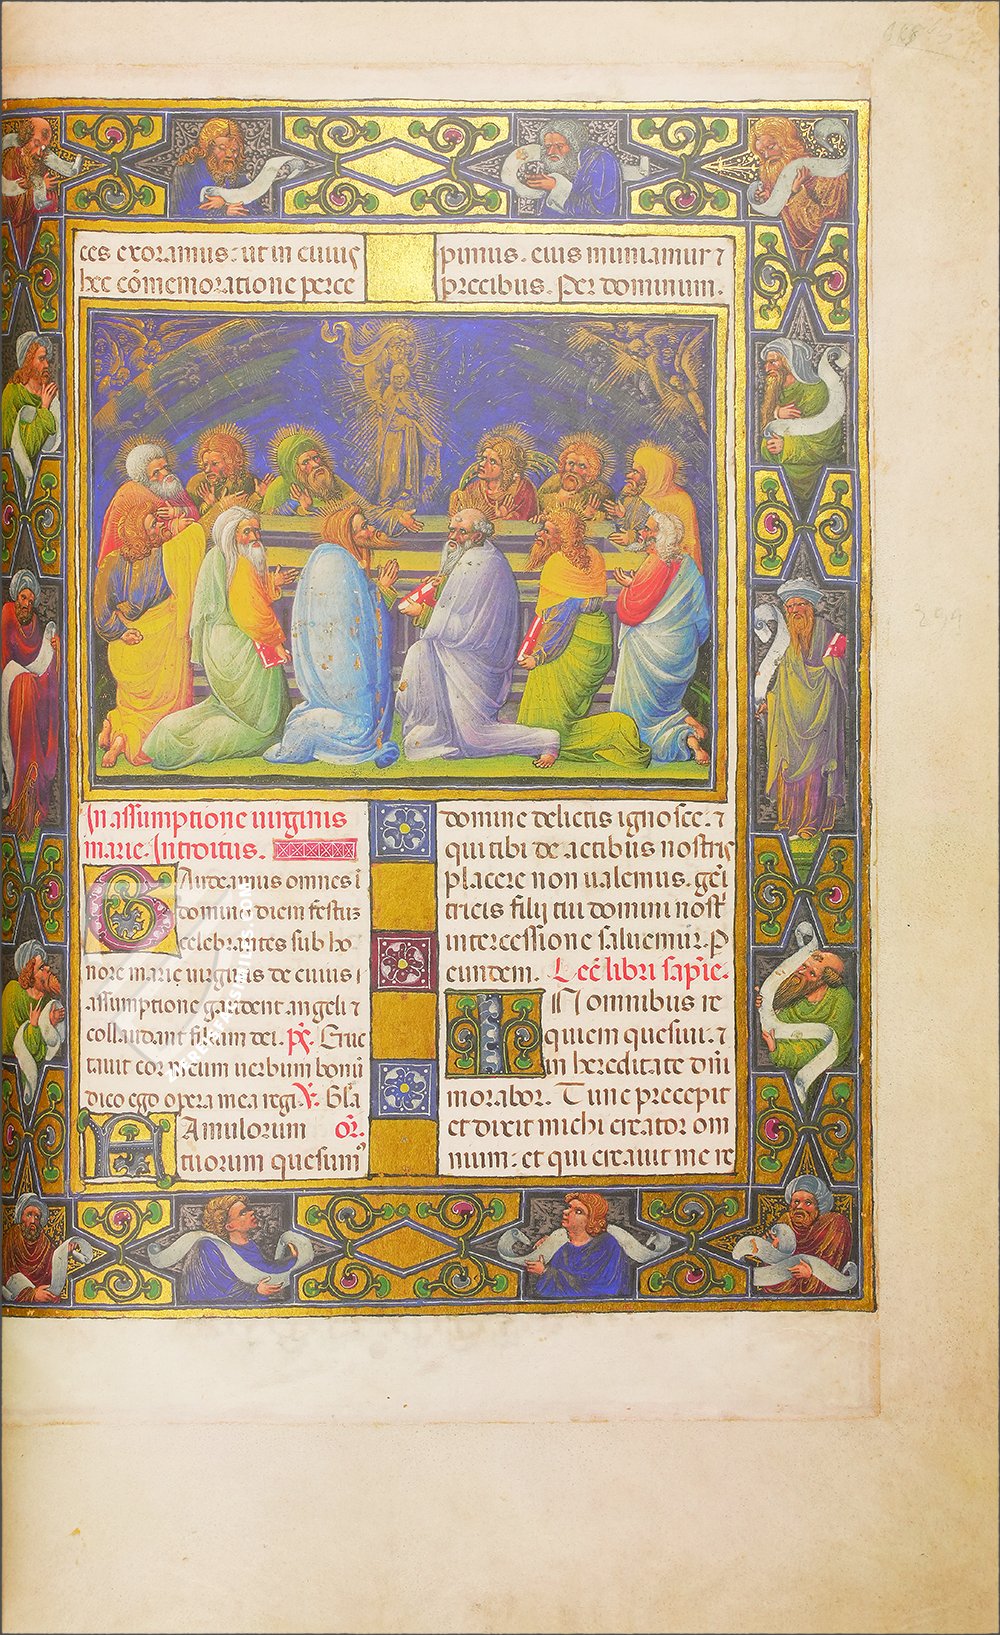 ces exoramus: ut in cuius
hec cōmemoratione perce
pimus. eius muniamur ⁊
precibus. Per dominum.
In assumptione uirginis
marie. Introitus.
Gaudeamus omnes ī
domino diem festuꝫ
celebrantes sub ho
nore marię uirginis de cuius
assumptione gaudent angeli ⁊
collaudant filium dei. p̄s. Eruc
tauit cor meum uerbum bonū
dico ego opera mea regi. ℣. Gl̄a
Famulorum or̄.
tuorum quesum
domine delictis ignosce. ⁊
qui tibi de actibus nostris
placere non ualemus. geī
tricis filij tui domini nost
intercessione saluemur. P
eundem. Lec̄ libri sapīe.
IN omnibus re
quiem quesiui. ⁊
in hereditate dn̄i
morabor. Tunc precepit
et dixit michi creator om
nium: et qui creauit me re
294